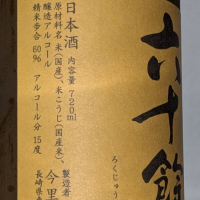 六十餘
ろくじゅう
日本酒 内容量720ml
原材料名 米(国産)、米こうじ(国産米)、
醸造アルコール
精米歩合 60% アルコール分 15度
製造者
今里
長崎県